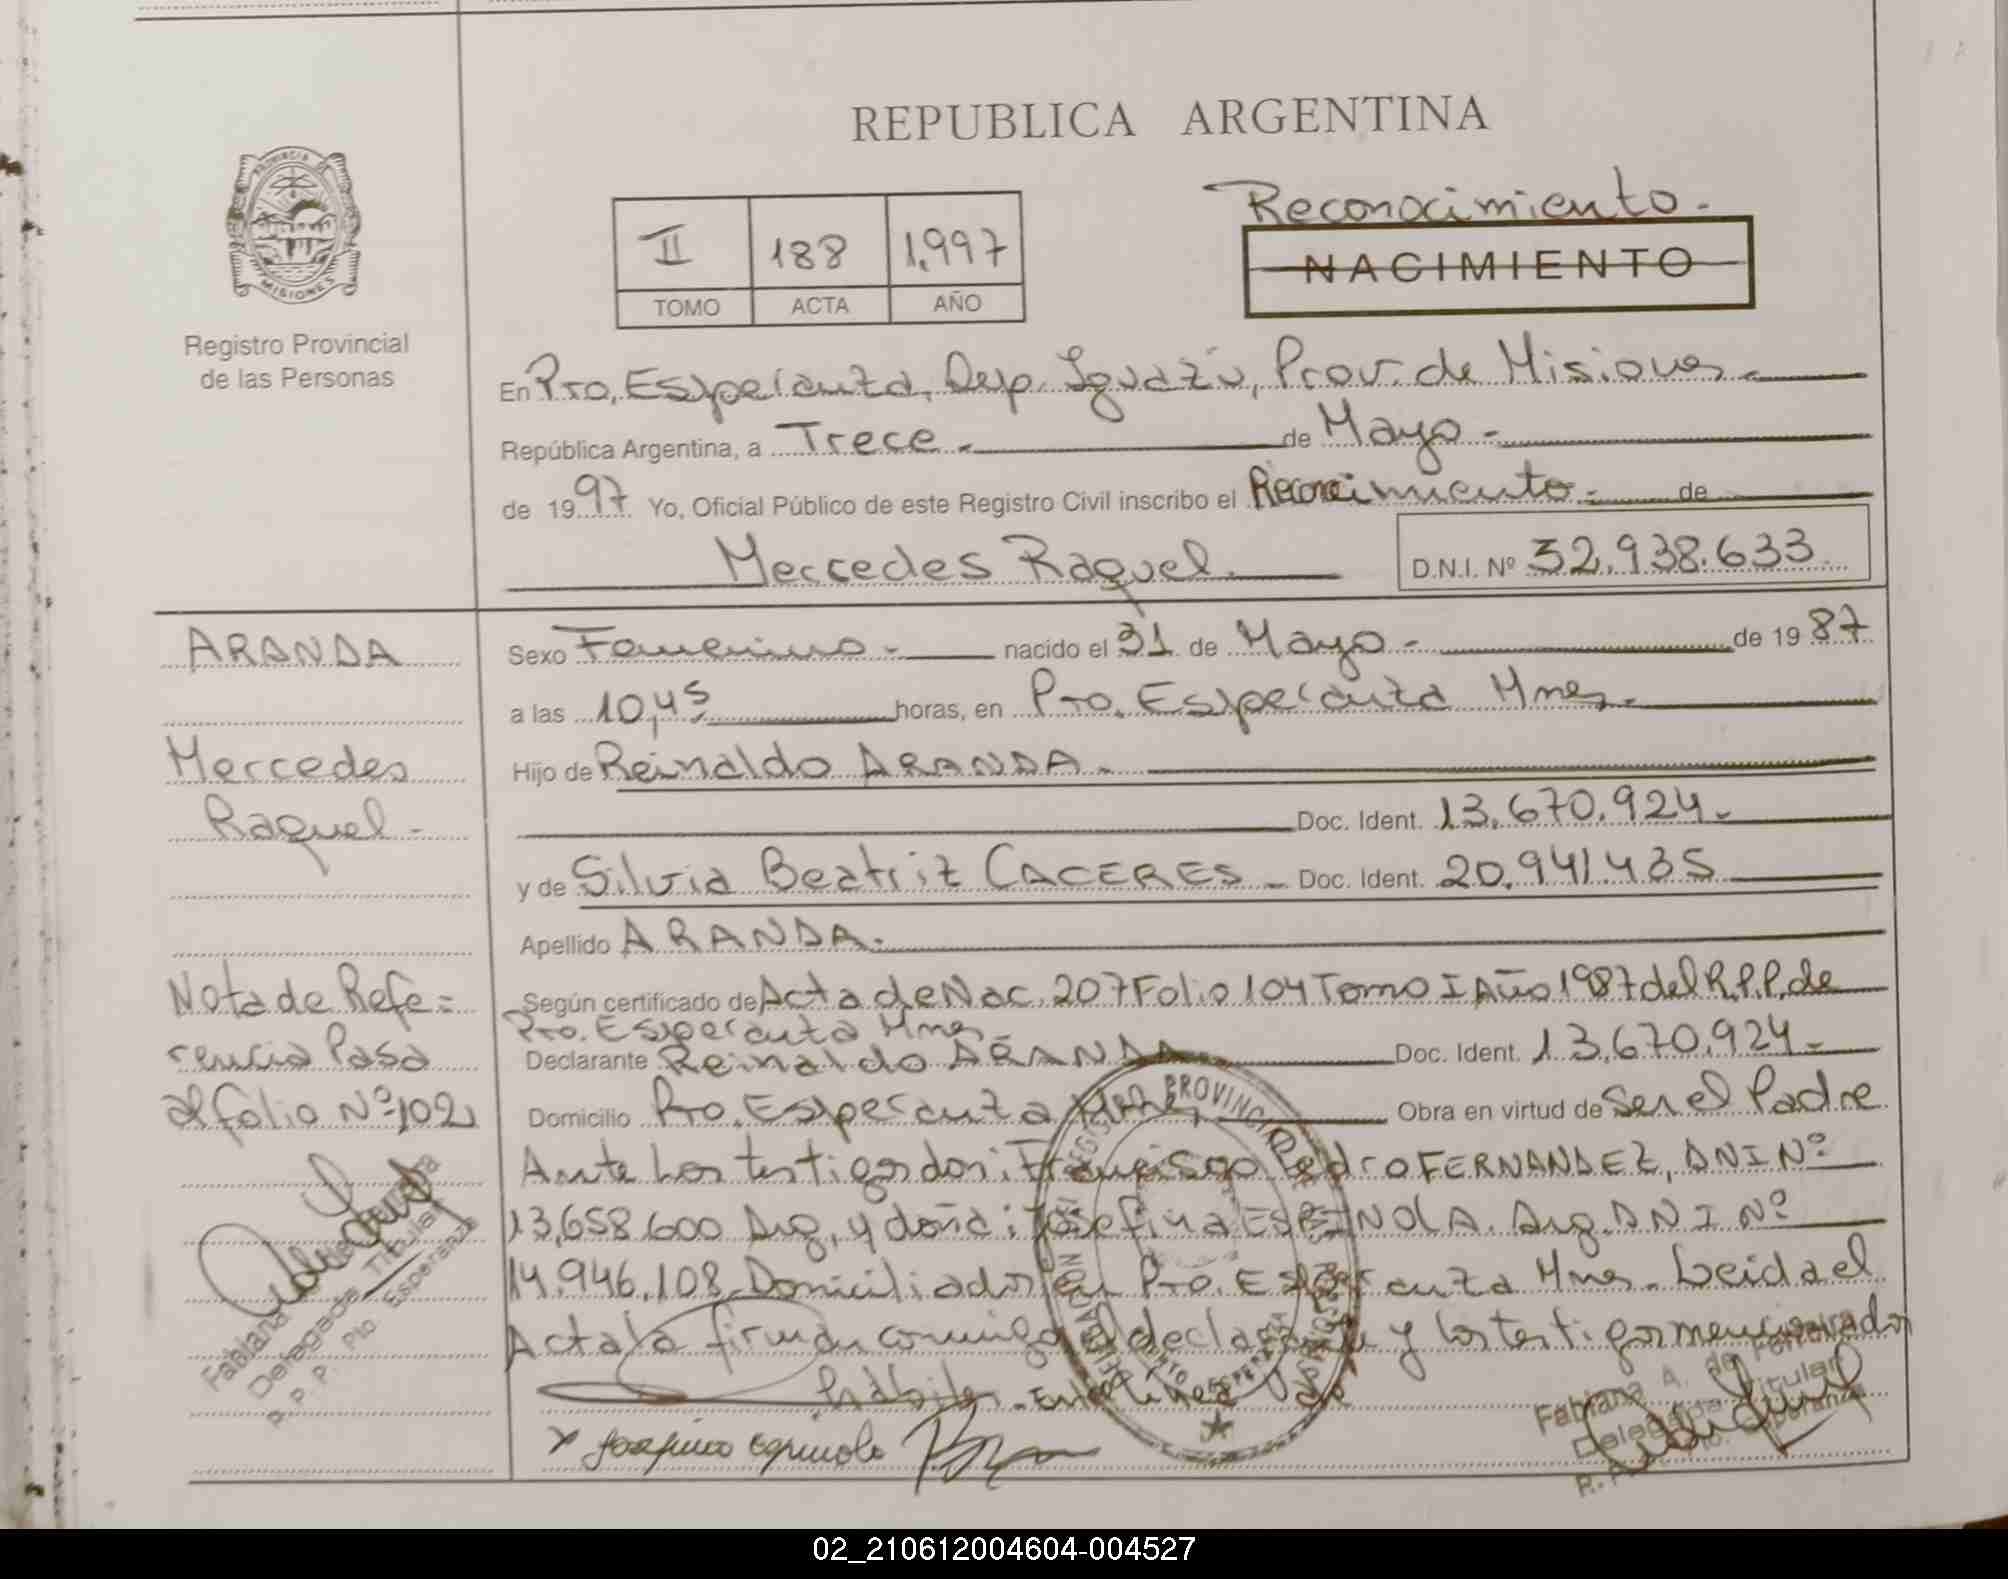 REPUBLICA ARGENTINA
PROVINCIA DE
MISIONES
Registro Provincial
de las Personas
II 188 1.997
TOMO ACTA AÑO
Reconocimiento.
NACIMIENTO
En Pto. Esperanza, Dep. Iguazú, Prov. de Misiones.
República Argentina, a Trece.- de Mayo.-
de 1997 Yo, Oficial Público de este Registro Civil inscribo el Reconocimiento.- de
Mercedes Raquel. D.N.I. Nº 32.938.633
ARANDA
Mercedes
Raquel.-
Nota de Refe=
rencia Pasa
al folio Nº 102
Sexo Femenino.- nacido el 31 de Mayo.- de 1987
a las 10,45 horas, en Pto. Esperanza Mnes.-
Hijo de Reinaldo ARANDA.-
Doc. Ident. 13.670.924.-
y de Silvia Beatriz CACERES.- Doc. Ident. 20.941.435
Apellido ARANDA.-
Según certificado de Acta de Nac. 207 Folio 104 Tomo I Año 1987 del R.P.P. de
Pto. Esperanza Mnes.-
Declarante Reinaldo ARANDA Doc. Ident. 13.670.924.-
Domicilio Pto. Esperanza Mnes, Obra en virtud de Ser el Padre
Ante los testigos don: Francisco Pedro FERNANDEZ, DNI Nº
13.658.600 Arg, y doña: Josefina ESPINOLA. Arg. DNI Nº
14.946.108. Domiciliados en Pto. Esperanza Mnes. Leida el
Acta la firman conmigo el declarante y los testigos mencionados
Josefina Espinola
Fabiana
Delegada Titular
R. P. P. Pto. Esperanza
Fabiana A. de Ferreira
Delegada Titular
02_210612004604-004527